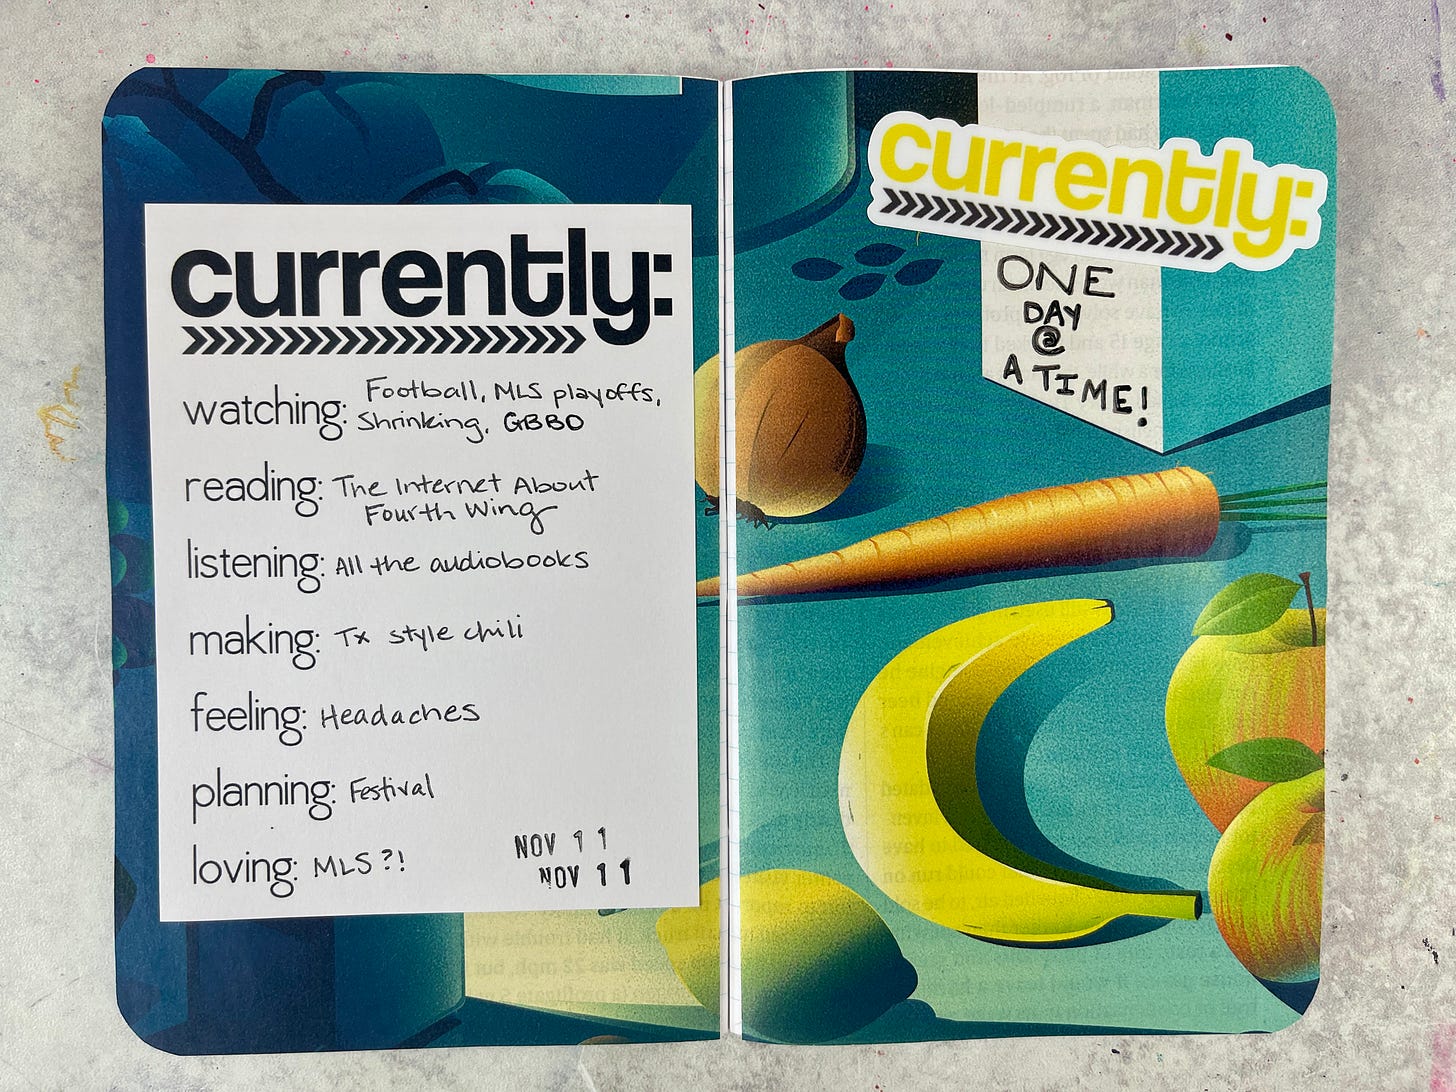 currently:
watching: Football, MLS playoffs,
Shrinking, GBBO
reading: The Internet About
Fourth Wing
listening: All the audiobooks
making: Tx style chili
feeling: Headaches
planning: Festival
loving: MLS?!
NOV 11
NOV 11
currently:
ONE
DAY
@
A TIME!